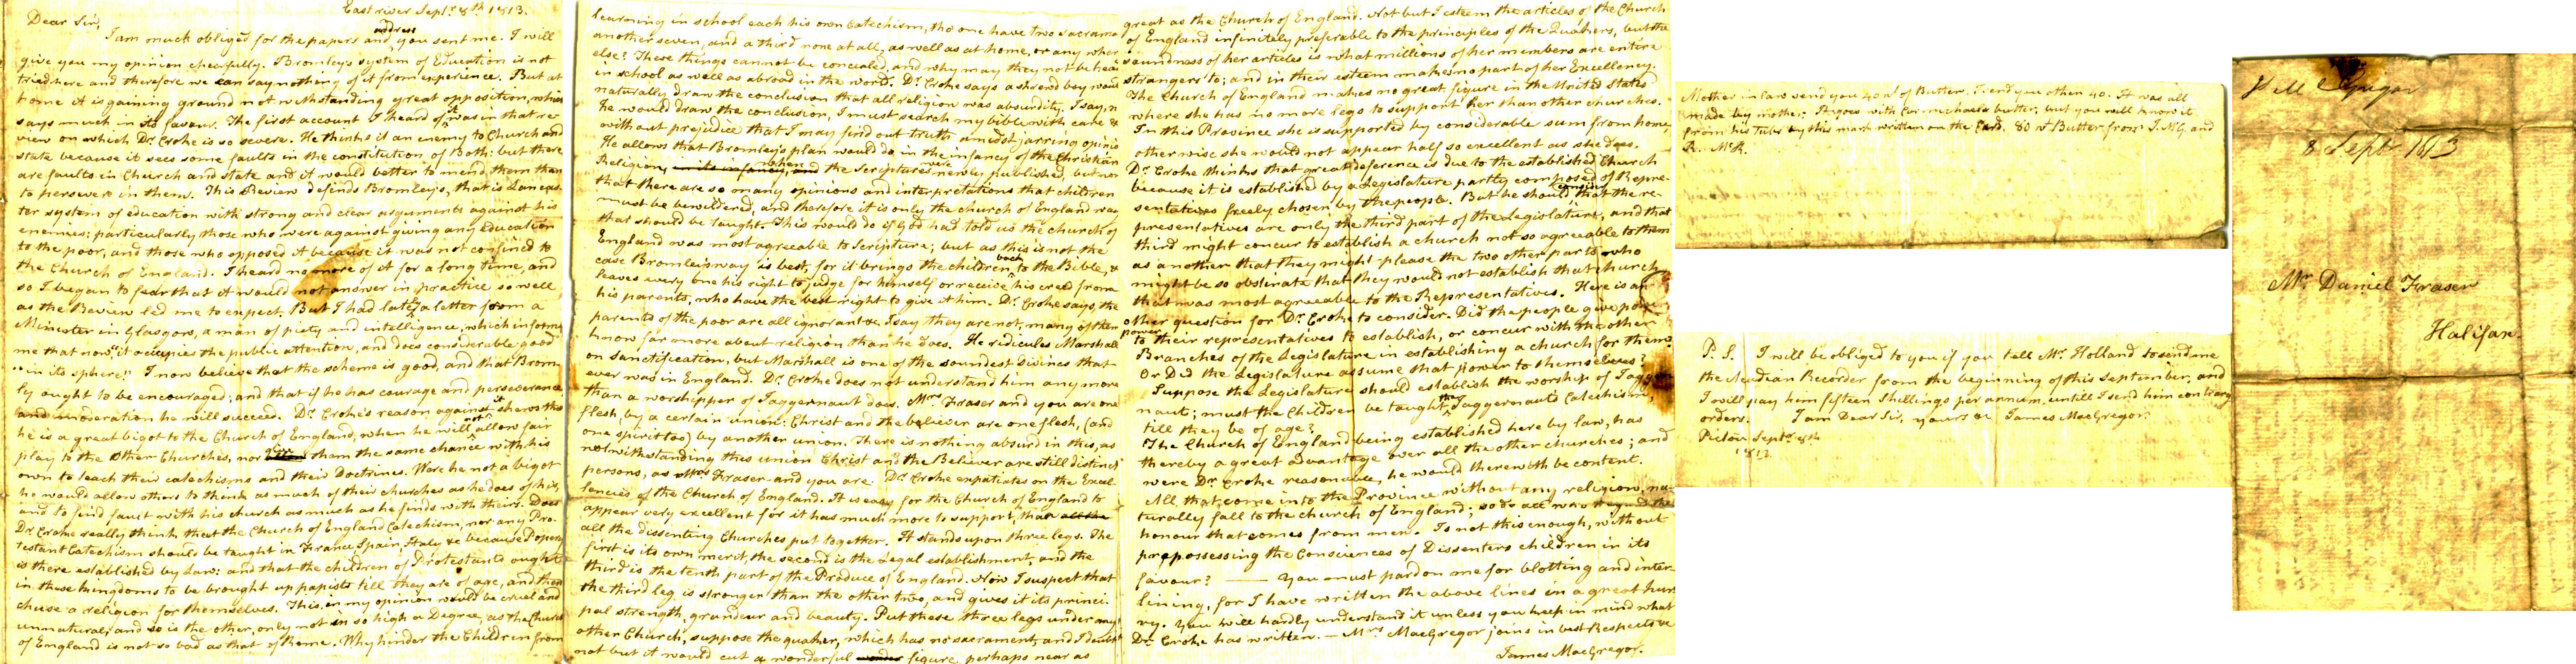 East river Sept. 8th 1813.
Dear Sir,
address
I am much obliged for the papers and you sent me. I will
give you my opinion chearfully. Bromley's system of Education is not
tried here and therefore we can say nothing of it from experience. But at
home it is gaining ground notwithstanding great opposition, which
says much in its favour. The first account I heard of it was in that re-
view on which Dr. Croke is so severe. He thinks it an enemy to Church and
state because it sees some faults in the constitution of Both: but there
are faults in Church and state and it would better to mend them than
to persevere in them. This Review defends Bromley's, that is Lancas-
ter system of education with strong and clear arguments against his
enemies: particularly those who were against giving any Education
to the poor, and those who opposed it because it was not confined to
the Church of England. I heard no more of it for a long time, and
so I began to fear that it would not answer in practice so well
as the Review led me to expect. But I had lately a letter from a
Minister in Glasgow, a man of piety and intelligence, which informs
me that now "it occupies the public attention, and does considerable good
"in its sphere." I now believe that the scheme is good, and that Brom-
ly ought to be encouraged; and that if he has courage and perseverance
and moderation he will succeed. Dr. Croke's reason against it shews that
he is a great bigot to the Church of England, when he will not allow fair
play to the other Churches, nor give them the same chance with his
own to teach their catechisms and their Doctrines. Were he not a bigot
he would allow others to think as much of their churches as he does of his,
and to find fault with his church as much as he finds with theirs. Does
Dr. Croke really think that the Church of England Catechism, nor any Pro-
testant Catechism should be taught in France, Spain, Italy &c because Popery
is there established by Law: and that the children of Protestants ought
in these kingdoms to be brought up papists till they are of age, and then
chuse a religion for themselves. This, in my opinion would be cruel and
unnatural; and so is the other, only not in so high a Degree, as the Church
of England is not so bad as that of Rome. Why hinder the Children from
learning in school each his own Catechism, tho one have two sacrame
another seven, and a third none at all, as well as at home, or any wher
else? These things cannot be concealed, and why may they not be hear
in school as well as abroad in the world. Dr. Croke says a shrewd boy woul
naturally draw the conclusion that all religion was absurdity. I say, n
he would draw the conclusion, I must search my bible with care &
without prejudice that I may find out truth amidst jarring opinio
He allows that Bromley's plan would do in the infancy of the Christian
Religion, in its infancy, and when the Scriptures were newly published, but now
that there are so many opinions and interpretations that children
must be bewildered, and therefore it is only the church of England way
that should be taught. This would do if God had told us the church of
England was most agreeable to Scripture; but as this is not the
case Bromleis way is best, for it brings the children back to the Bible, &
leaves every one his right to judge for himself or receive his creed from
his parents, who have the best right to give it him. Dr. Croke says, the
parents of the poor are all ignorant &c. I say they are not, many of them
know far more about religion than he does. He ridicules Marshall
on sanctification, but Marshall is one of the soundest Divines that
ever was in England. Dr. Croke does not understand him any more
than a worshipper of Jaggernaut does. Mrs. Fraser and you are one
flesh, by a certain union: Christ and the believer are one flesh, (and
one spirit too) by another union. There is nothing absurd in this, as
notwithstanding this union Christ and the Believer are still distinct
persons, as Mrs. Fraser and you are. Dr. Croke expatiates on the Excel-
lencies of the Church of England. It is easy for the Church of England to
appear very excellent for it has much more to support, than all the
all the dissenting Churches put together. It stands upon three legs. The
first is its own merit, the second is the Legal establishment, and the
third is the tenth part of the Produce of England. Now I suspect that
the third leg is stronger than the other two, and gives it its princi-
pal strength, grandeur and beauty. Put these three legs under any
other Church, suppose the quaker, which has no sacrament, and I doubt
not but it would cut a wonderful figure perhaps near as
great as the Church of England. Not but I esteem the articles of the Church
of England infinitely preferable to the principles of the Quakers, but the
soundness of her articles is what millions of her members are entire
strangers to; and in their esteem makes no part of her Excellency.
The Church of England makes no great figure in the United States
where she has no more legs to support her than other churches.
In this Province she is supported by considerable sum from home,
otherwise she would not appear half so excellent as she does.
Dr. Croke thinks that great deference is due to the established Church
because it is established by a Legislature partly composed of Repre-
sentatives freely chosen by the people. But he should consider that the re-
presentatives are only the third part of the Legislature, and that
third might concur to establish a church not so agreeable to them
as another that they might please the two other parts who
might be so obstinate that they would not establish that church
that was most agreeable to the Representatives. Here is an
other question for Dr. Croke to consider. Did the people give pow
power to their representatives to establish, or concur with the other
Branches of the Legislature in establishing a church for them?
Or Did the Legislature assume that power to themselves?
Suppose the Legislature should establish the worship of Jagger
naut; must the Children be taught the Jaggernauts Catechism,
till they be of age?
The Church of England being established here by law, has
thereby a great advantage over all the other churches; and
were Dr. Croke reasonable, he would therewith be content.
All that come into the Province without any religion, na-
turally fall to the church of England; so do all who regard the
honour that comes from men. Is not this enough, without
prepossessing the Consciences of Dissenters children in its
favour? —— You must pardon me for blotting and inter-
lining, for I have written the above lines in a great hur
ry. You will hardly understand it unless you keep in mind what
Dr. Croke has written. — Mrs. MacGregor joins in best Respects &c
James MacGregor.
Mother in law send you 40 wt of Butter. I send you other 40. It was all
made by mother. It goes with Carmichael's butter, but you will know it
from his Tubs by this mark written on the Card. 80 wt Butter from J. McG. and
R. McK.
P.S. I will be obliged to you if you tell Mr. Holland to send me
the Acadian Recorder from the beginning of this September, and
I will pay him fifteen Shillings per annum, until I send him contrary
orders. I am Dear Sir, yours &c James MacGregor.
Pictou Sept. 8th
1813
McGrigor
8 Sept 1813
Mr. Daniel Fraser
Halifax.